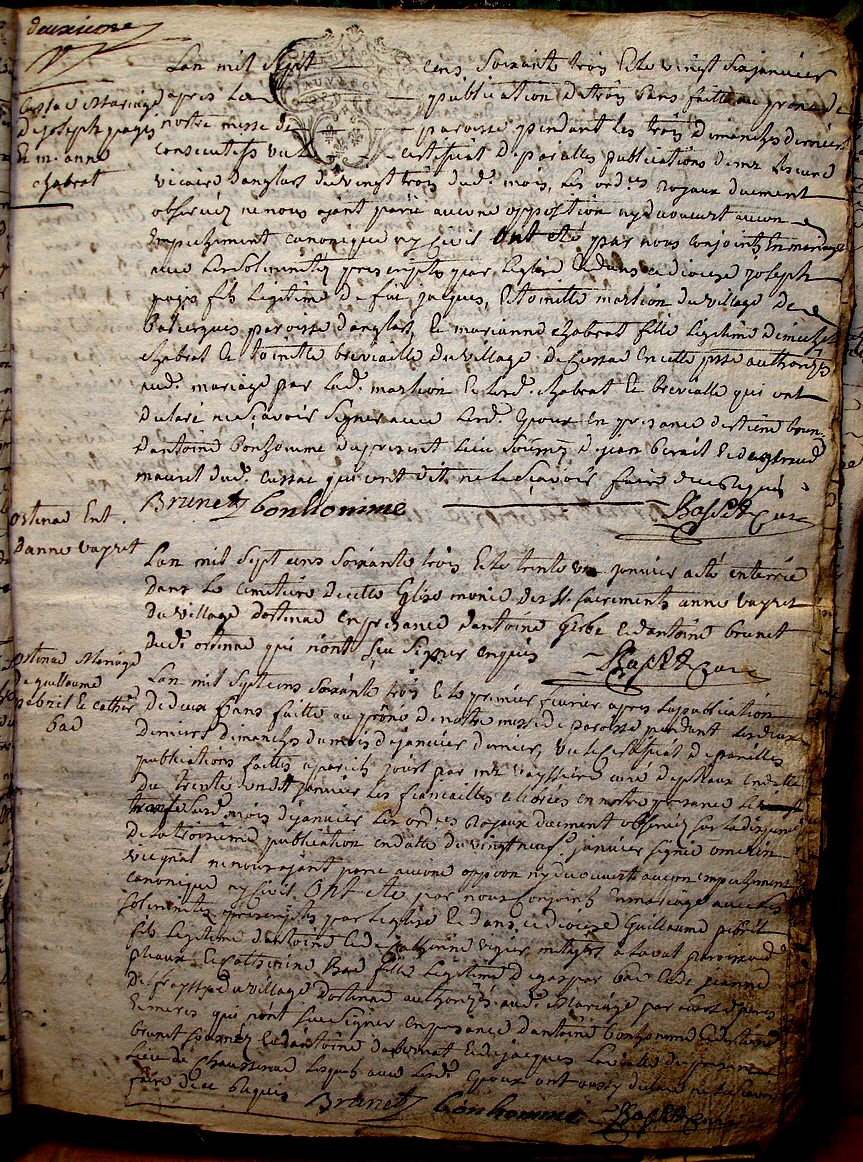 deuxieme
Cussac Mariage
de joseph pagis
et m: anne
Chabrat
Lan mil sept cens soixante trois et le vingt six janvier
apres la publication de trois bans faitte au prone de
notre messe de paroisse pendant les trois dimanches derniers
consecutifs vu le certificat de pareilles publications de mr
vicaire danglars du vingt trois dud. mois, les ord.es royaux duement
observées ne nous ayant parû aucune opposition ny decouvert aucun
empechement canonique ny civil ont eté par nous conjoints en mariage
avec les solemnités prescriptes par leglise et dans ce dioceze joseph
pagis fils legitime de feu jacques, et toinette martion du village de
paroisse danglars, et marianne chabrat fille legitime de michel
chabrat et toinette brevialle du village de Cussac en cette psse authorizés
aud. mariage par lad. martion et led. chabrat et brevialle qui ont
declaré ne sçavoir signer avec led. epoux en presence destiene brun
dantoine bonhomme du present lieu soussig. de jean
mauret dud. cussac qui ont dit ne le sçavoir faire de ce requis
Brunet bonhomme Basset Curé
ostenac Ent.
danne vayret
Lan mil sept cens soixante trois et le trente un janvier a eté enterrée
dans le cimetiere de cette Eglise munie des st. sacrements anne vayret
du village dostenac en presence dantoine gerbe et dantoine brunet
dud. ostenac qui n'ont sçu signer enquis Basset Curé
ostenac Mariage
de guillaume
et cather.
bac
Lan mil sept cens soixante trois et le premier fevrier apres la publication
de deux bans faitte au prône de notre messe de paroisse pendant les deux
derniers dimanches du mois de janvier dernier, vu le certificat de pareilles
publications faittes a pareils jours par mr vayssiere curé de pleaux en datte
du trente un janvier les fiancailles celebrées en notre presence le
dud. mois de janvier les ord.es royaux duement observées sur la dispense
de la troisieme publication en datte du vingt neuf janvier signé
vic. gnal ne nous ayant parû aucune oppoon ny decouvert aucun empechement
canonique ny civil ont eté par nous conjoints en mariage avec les
solemnités prescriptes par leglise et dans ce dioceze Guillaume
fils legitime dantoine et de catherine vigier paroisse de
pleaux et catherine Bac fille legitime de gaspar bac et de jeanne
du village dostenac authorizés aud. Mariage par
et meres qui n'ont sçu signer en presence dantoine bonhomme et destiene
brunet soussig. et dantoine et de jacques du present
lieu de Chaussenac lesquels avec led. epoux ont ne le sçavoir
faire de ce requis Brunet bonhomme Basset Curé